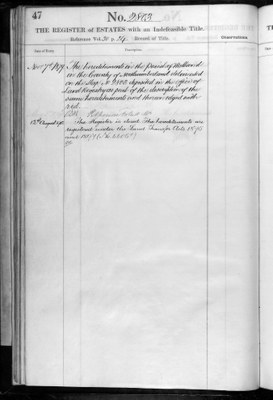 47
No. 2803
THE REGISTER of ESTATES with an Indefeasible Title.
Reference Vol. No. 2. 14. Record of Title.
Observations.
Date of Entry.
Description.
Novr 7th 1879
The hereditaments in the parish of
in the County of Northumberland delineated
on the Map No. 2803 deposited in the office of
Land Registry as part of the description of the
same hereditaments and thereon edged with
red.
The Register is closed. The hereditaments are
registered under the Land Transfer Acts 1875
and 1897